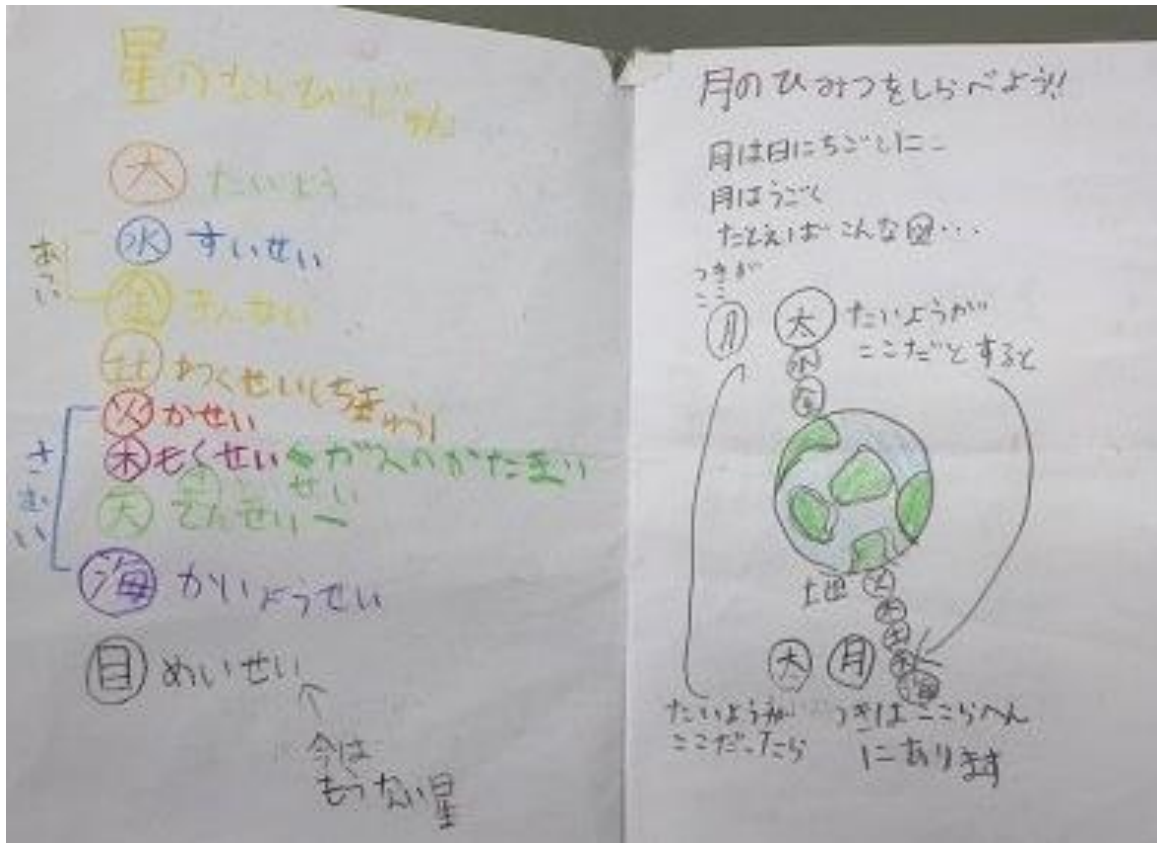 星のならびじゅん
大 たいよう
水 すいせい
金 きんせい
あつい
わくせい(ちきゅう)
火 かせい
木 もくせい ガスのかたまり
せい
天 てんせい
さむい
海 かいようせい
目 めいせい
今は
もうない星
月のひみつをしらべよう!!
月は日にちごとに
月はうごく
たとえばこんな図…
つきが
ここ
月 太 たいようが
ここだとすると
水
金
土 火
木
土
天
海
大 月
たいようが
ここだったら
つきはここらへん
にあります